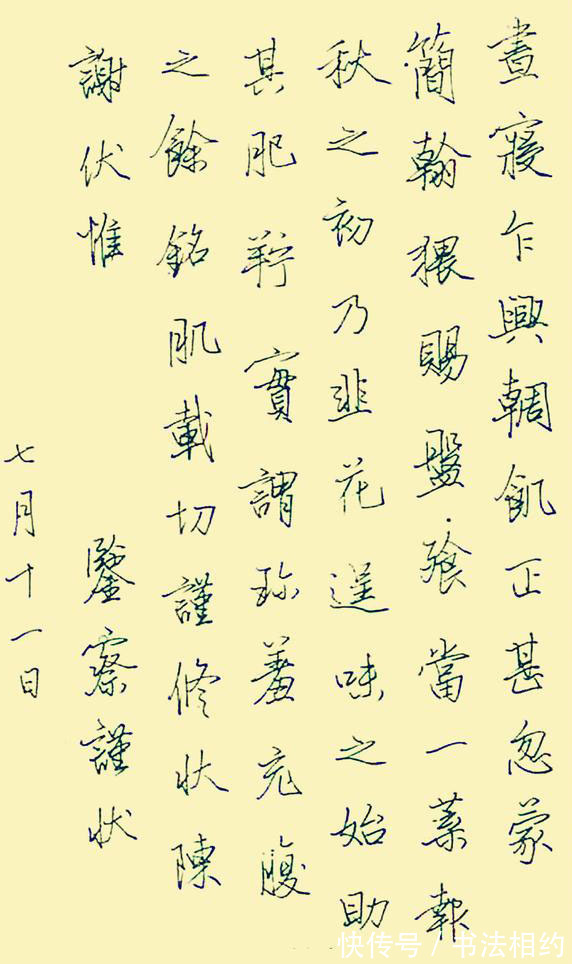 晝寢乍興輖飢正甚忽蒙
簡翰猥賜盤飡當一葉報
秋之初乃韭花逞味之始助
其肥羜實謂珎羞充腹
之餘銘肌載切謹修狀陳
謝伏惟
鑒察謹狀
七月十一日
快传号/书法相约